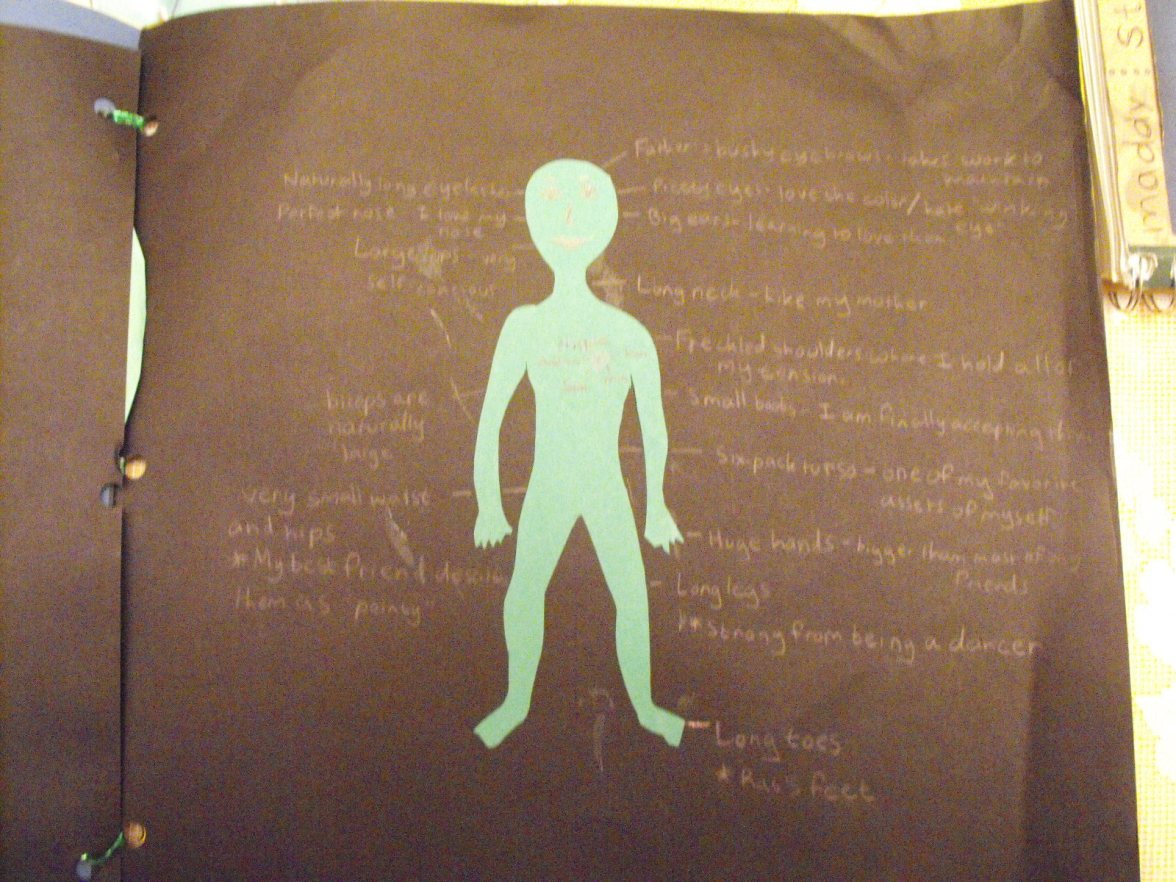 Father's bushy eyebrows - takes work to
maintain
Naturally long eyelashes
Pretty eyes - love the color/hate "winking
eye"
Perfect nose I love my
nose
Big ears - learning to love them
Large lips - very
self concious
Long neck - like my mother
Freckled shoulders where I hold all of
my tension.
biceps are
naturally
large
Small boobs - I am finally accepting them
Six pack torso - one of my favorite
assets of myself
very small waist
and hips
* My best friend describes
them as "pointy"
Huge hands - bigger than most of my
friends
Long legs
** Strong from being a dancer
Long toes
* Rab's feet
maddy St